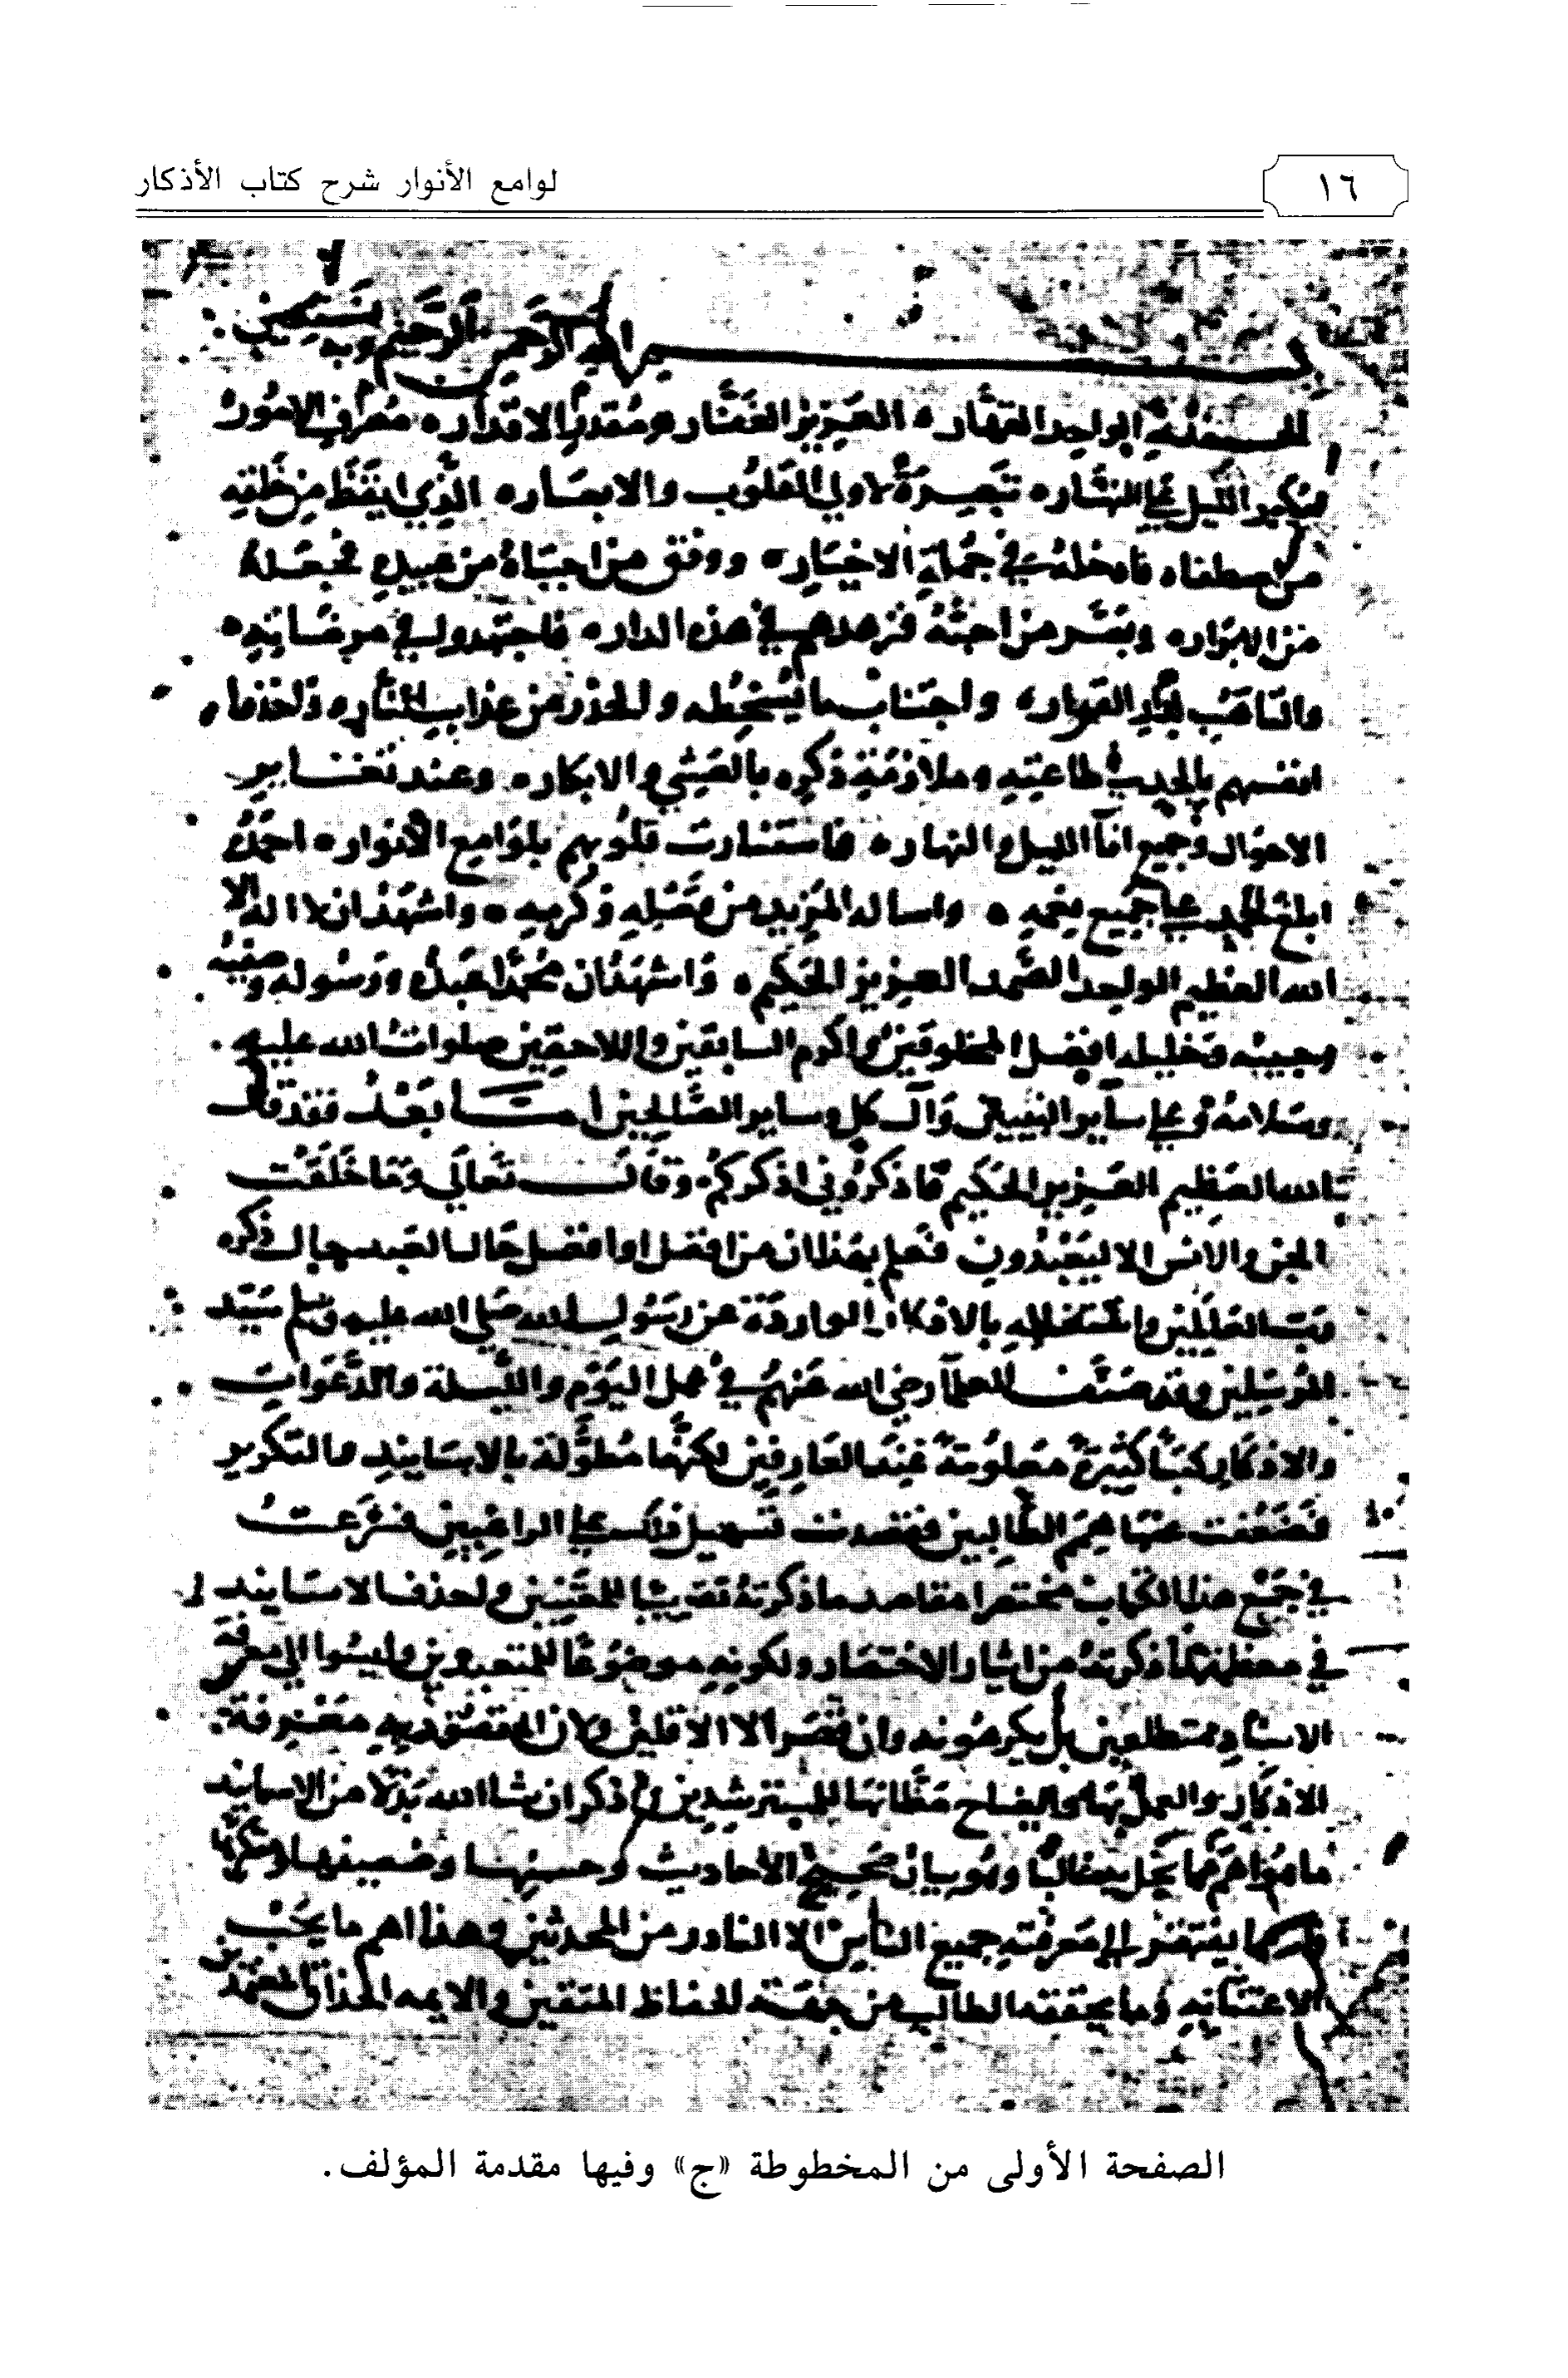 ١٦
لوامع الأنوار شرح كتاب الأذكار
بسم الله الرحمن الرحيم وبه نستعين
الحمد لله الواحد القهار العزيز الغفار مقدر الاقدار مصرف الامور
مكور الليل على النهار تبصرة لاولي القلوب والابصار الذي ايقظ من خلقه
من اصطفاه فادخله في جملة الاخيار ووفق من اجتباه من عبيده فجعله
من الابرار وبصر من احبه فزهدهم في هذه الدار فاجتهدوا في مرضاته
والتأهب لدار القرار واجتناب ما يسخطه والحذر من عذاب النار واخذوا
انفسهم بالجد في طاعته وملازمة ذكره بالعشي والابكار وعند تغاير
الاحوال وجميع انآ الليل والنهار فاستنارت قلوبهم بلوامع الانوار احمده
ابلغ الحمد على جميع نعمه واساله المزيد من فضله وكرمه واشهد ان لا اله الا
الله العظيم الواحد الصمد العزيز الحكيم واشهد ان محمدا عبده ورسوله وصفيه
وحبيبه وخليله افضل المخلوقين واكرم السابقين واللاحقين صلوات الله عليه
وسلامه وعلى سآير النبيين وآل كل وساير الصالحين اما بعد فقد قال
الله العظيم العزيز الحكيم فاذكروني اذكركم وقال تعالى وما خلقت
الجن والانس الا ليعبدون فعلم بهذا ان من افضل او افضل حال العبد حال ذكره
رب العالمين واشتغاله بالاذكار الواردة عن رسول الله صلى الله عليه وسلم سيد
المرسلين وقد صنف العلمآ رضي الله عنهم في عمل اليوم والليلة والدعوات
والاذكار كتبا كثيرة معلومة عند العارفين لكنها مطولة بالاسانيد والتكرير
فضعفت عنها همم الطالبين فقصدت تسهيل ذلك على الراغبين فشرعت
في جمع هذا الكتاب مختصرا مقاصد ما ذكرته تقريبا للمعتنين واحذف الاسانيد
في معظمه لما ذكرته من ايثار الاختصار ولكونه موضوعا للمتعبدين وليسوا الى معرفة
الاسانيد متطلعين بل يكرهونه وان قصر الا الاقلين ولان المقصود به معرفة
الاذكار والعمل بها وايضاح مظانها للمسترشدين واذكر ان شا الله بدلا من الاسانيد
ما هو اهم منها مما يخل به غالبا وهو بيان صحيح الاحاديث وحسنها وضعيفها ومنكرها
فانه مما يفتقر الى معرفته جميع الناس الا النادر من المحدثين وهذا اهم ما يجب
الاعتنا به وما يحققه الطالب من جهة الحفاظ المتقنين والايمه الحذاق المعتمدين
الصفحة الأولى من المخطوطة «ج» وفيها مقدمة المؤلف.